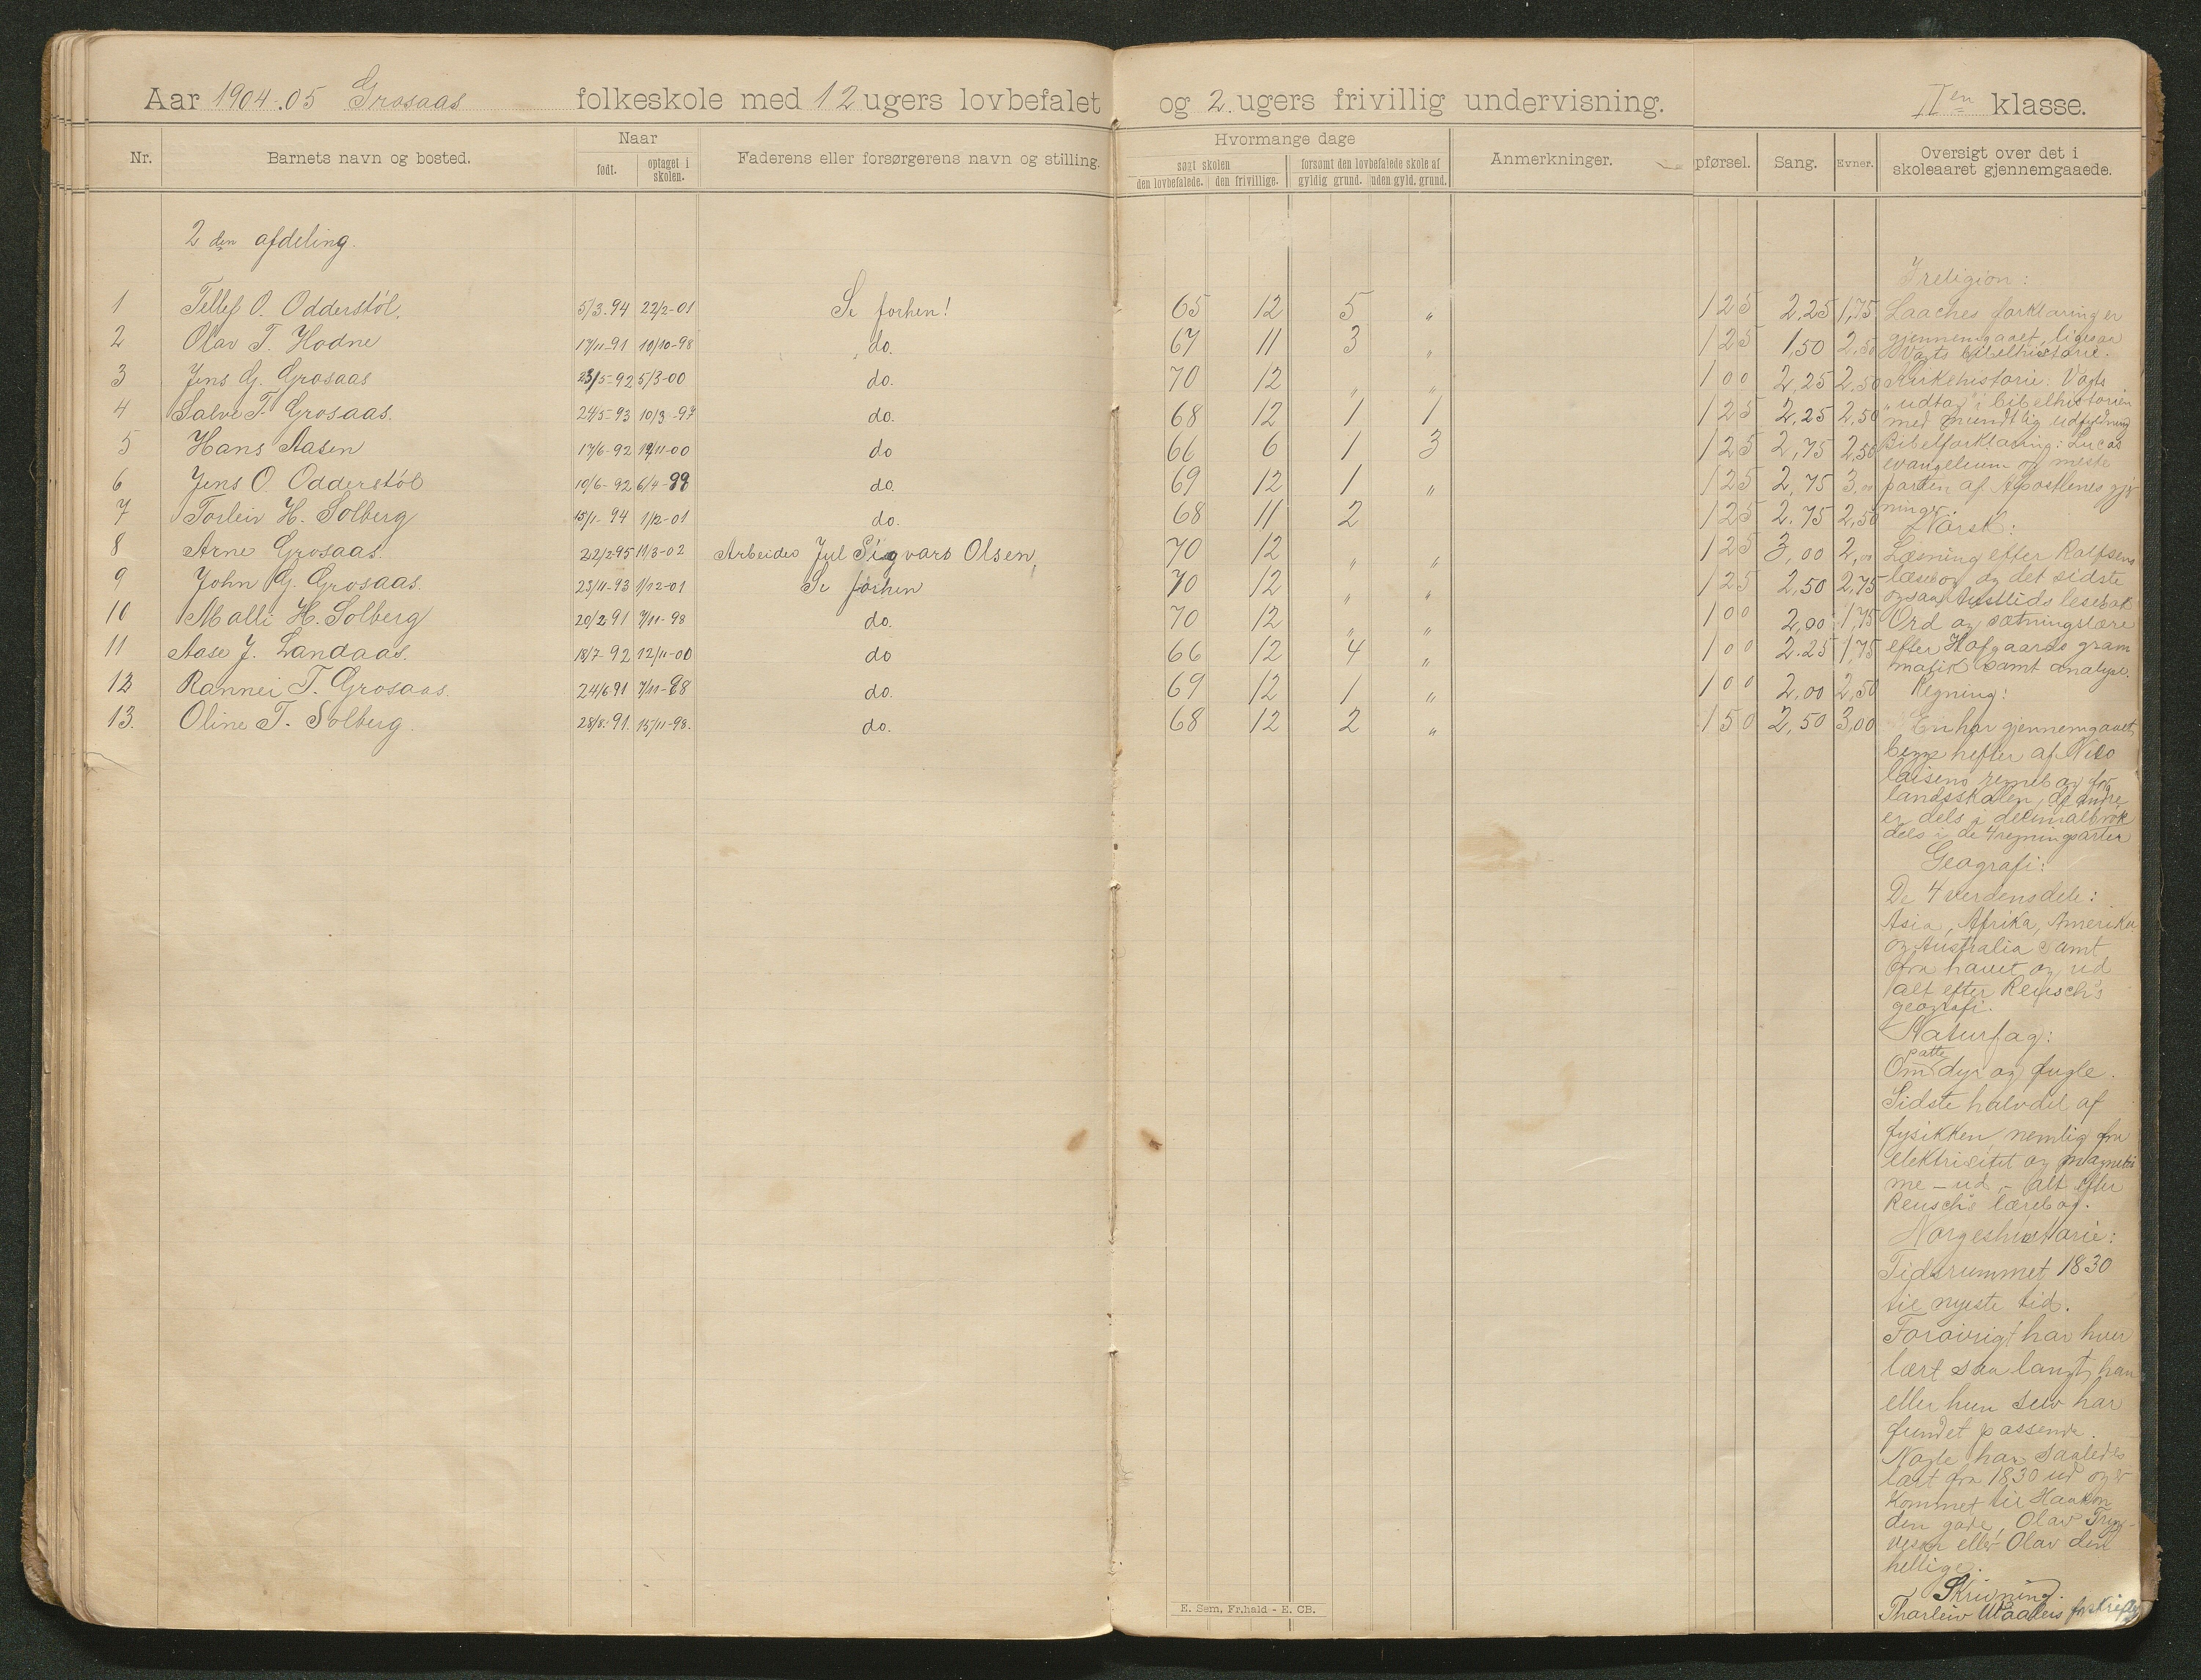 Aar 1904-05 Grosaas folkeskole med 12 ugers lovbefalet og 2 ugers frivillig undervisning. II en klasse.
Nr. Barnets navn og bosted. Naar Faderens eller forsørgerens navn og stilling. Hvormange dage Anmerkninger. pførsel. Sang. Evner. Oversigt over det i skoleaaret gjennemgaaede.
født. optaget i skolen. søgt skolen forsømt den lovbefalede skole af
den lovbefalede. den frivillige. gyldig grund. uden gyld. grund.
2 den afdeling.
1 Tellef O. Odderstöl. 5/3.94 22/2-01 Se forhen! 65 12 5 " 1 25 2,25 1,75
2 Olav T. Hodne 17/11-91 10/10-98 do. 67 11 3 " 1 25 1,50 2,50
3 Jens G. Grosaas 23/5-92 5/3-00 do. 70 12 " " 1 00 2,25 2,50
4 Salve T. Grosaas. 24/5-93 10/3-97 do. 68 12 1 1 1 25 2,25 2,50
5 Hans Aasen 17/6-92 19/11-00 do 66 6 1 3 1 25 2,75 2,50
6 Jens O. Odderstöl 10/6-92 6/4-99 do. 69 12 1 " 1 25 2,75 3,00
7 Torleiv H. Solberg 15/1-94 1/2-01 do. 68 11 2 1 25 2.75 2,50
8 Arne Grosaas. 22/2-95 11/3-02 Arbeider Jul Sigvars Olsen, 70 12 " " 1 25 3,00 2,00
9 John G. Grosaas. 23/11-93 1/12-01 Se forhen 70 12 " " 1 25 2,50 2,75
10 Malli H. Solberg 20/2 91 7/11-98 do. 70 12 " " 1 00 2,00 1,75
11 Aase J. Landaas. 18/7-92 12/11-00 do 66 12 4 " 1 00 2.25 1,75
12 Rannei T. Grosaas. 24/6 91 7/11-98 do. 69 12 1 " 1 00 2,00 2,50
13. Oline T. Solberg. 28/8.91. 15/11-98. do. 68 12 2 " 1 50 2,50 3,00
I religion:
Laaches forklaring er
gjennemgaaet, ligesaa
Vogts bibelhistorie.
Kirkehistorie: Vogts
"udtog" i bibelhistorien
med mundtlig udfyldning
Bibelforklaring: Lucas
evangelium og meste
parten af Apostlenes gjer
ninger.
Norsk:
Læsning efter Rolfsens
læsebog og det sidste
ogsaa Austlids lesebok
Ord og sætningslære
efter Hofgaards gram
matik samt analyse.
Regning:
En har gjennemgaaet
begge hefter af Nico
laisens regnebog for
landsskolen, de andre
er dels i decimalbrøk
dels i de 4 regningsarter
Geografi:
De 4 verdensdele:
Asia, Afrika, Amerika
og Australia samt
fra havet og ud
alt efter Reusch's
geografi.
Naturfag:
patte
Om dyr og fugle.
Sidste halvdel af
fysikken nemlig fra
elektrisitet og magnetis
me - ud, - alt efter
Reusch's lærebog.
Norgeshistorie:
Tidsrummet 1830
til nyeste tid.
Forøvrigt har hver
lært saa langt han
eller hun selv har
fundet passende.
Nogle har saaledes
lært fra 1830 ud og er
kommet til Haakon
den gode, Olav Tryg-
vesøn eller Olav den
hellige.
Skrivning.
Tharleiv Waalers forskrifter
E. Sem, Fr.hald - E. CB.